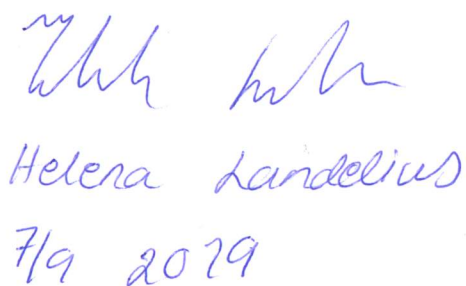 Helena Landelius
7/9 2019